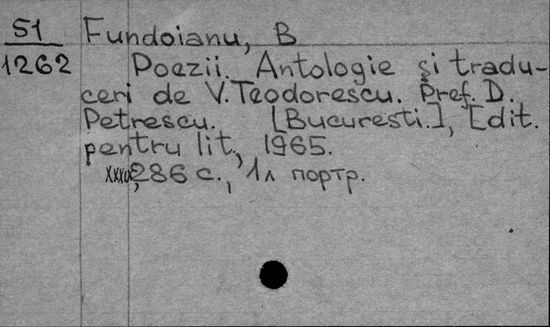 51
1262
Fundoianu, B
Poezii. Antologie și tradu-
ceri de V. Teodorescu. Pref. D.
Petrescu. [Bucuresti.], Edit.
pentru lit., 1965.
286 с., 1л портр.